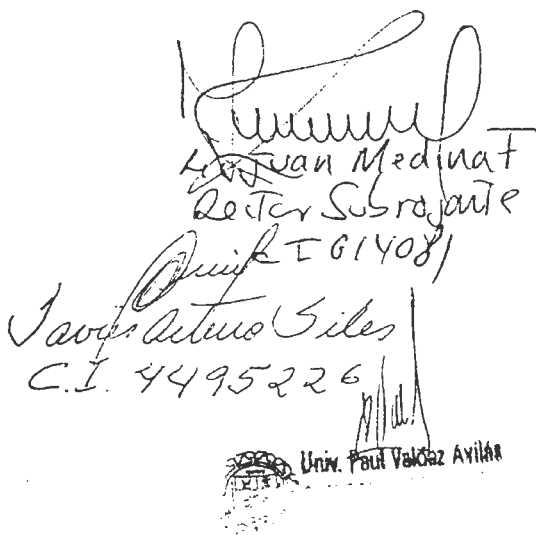 Juan Medina T
Rector Subrogante
I 614081
Javier Arturo Siles
C.I. 4495226
Univ. Paul Valdez Avilés